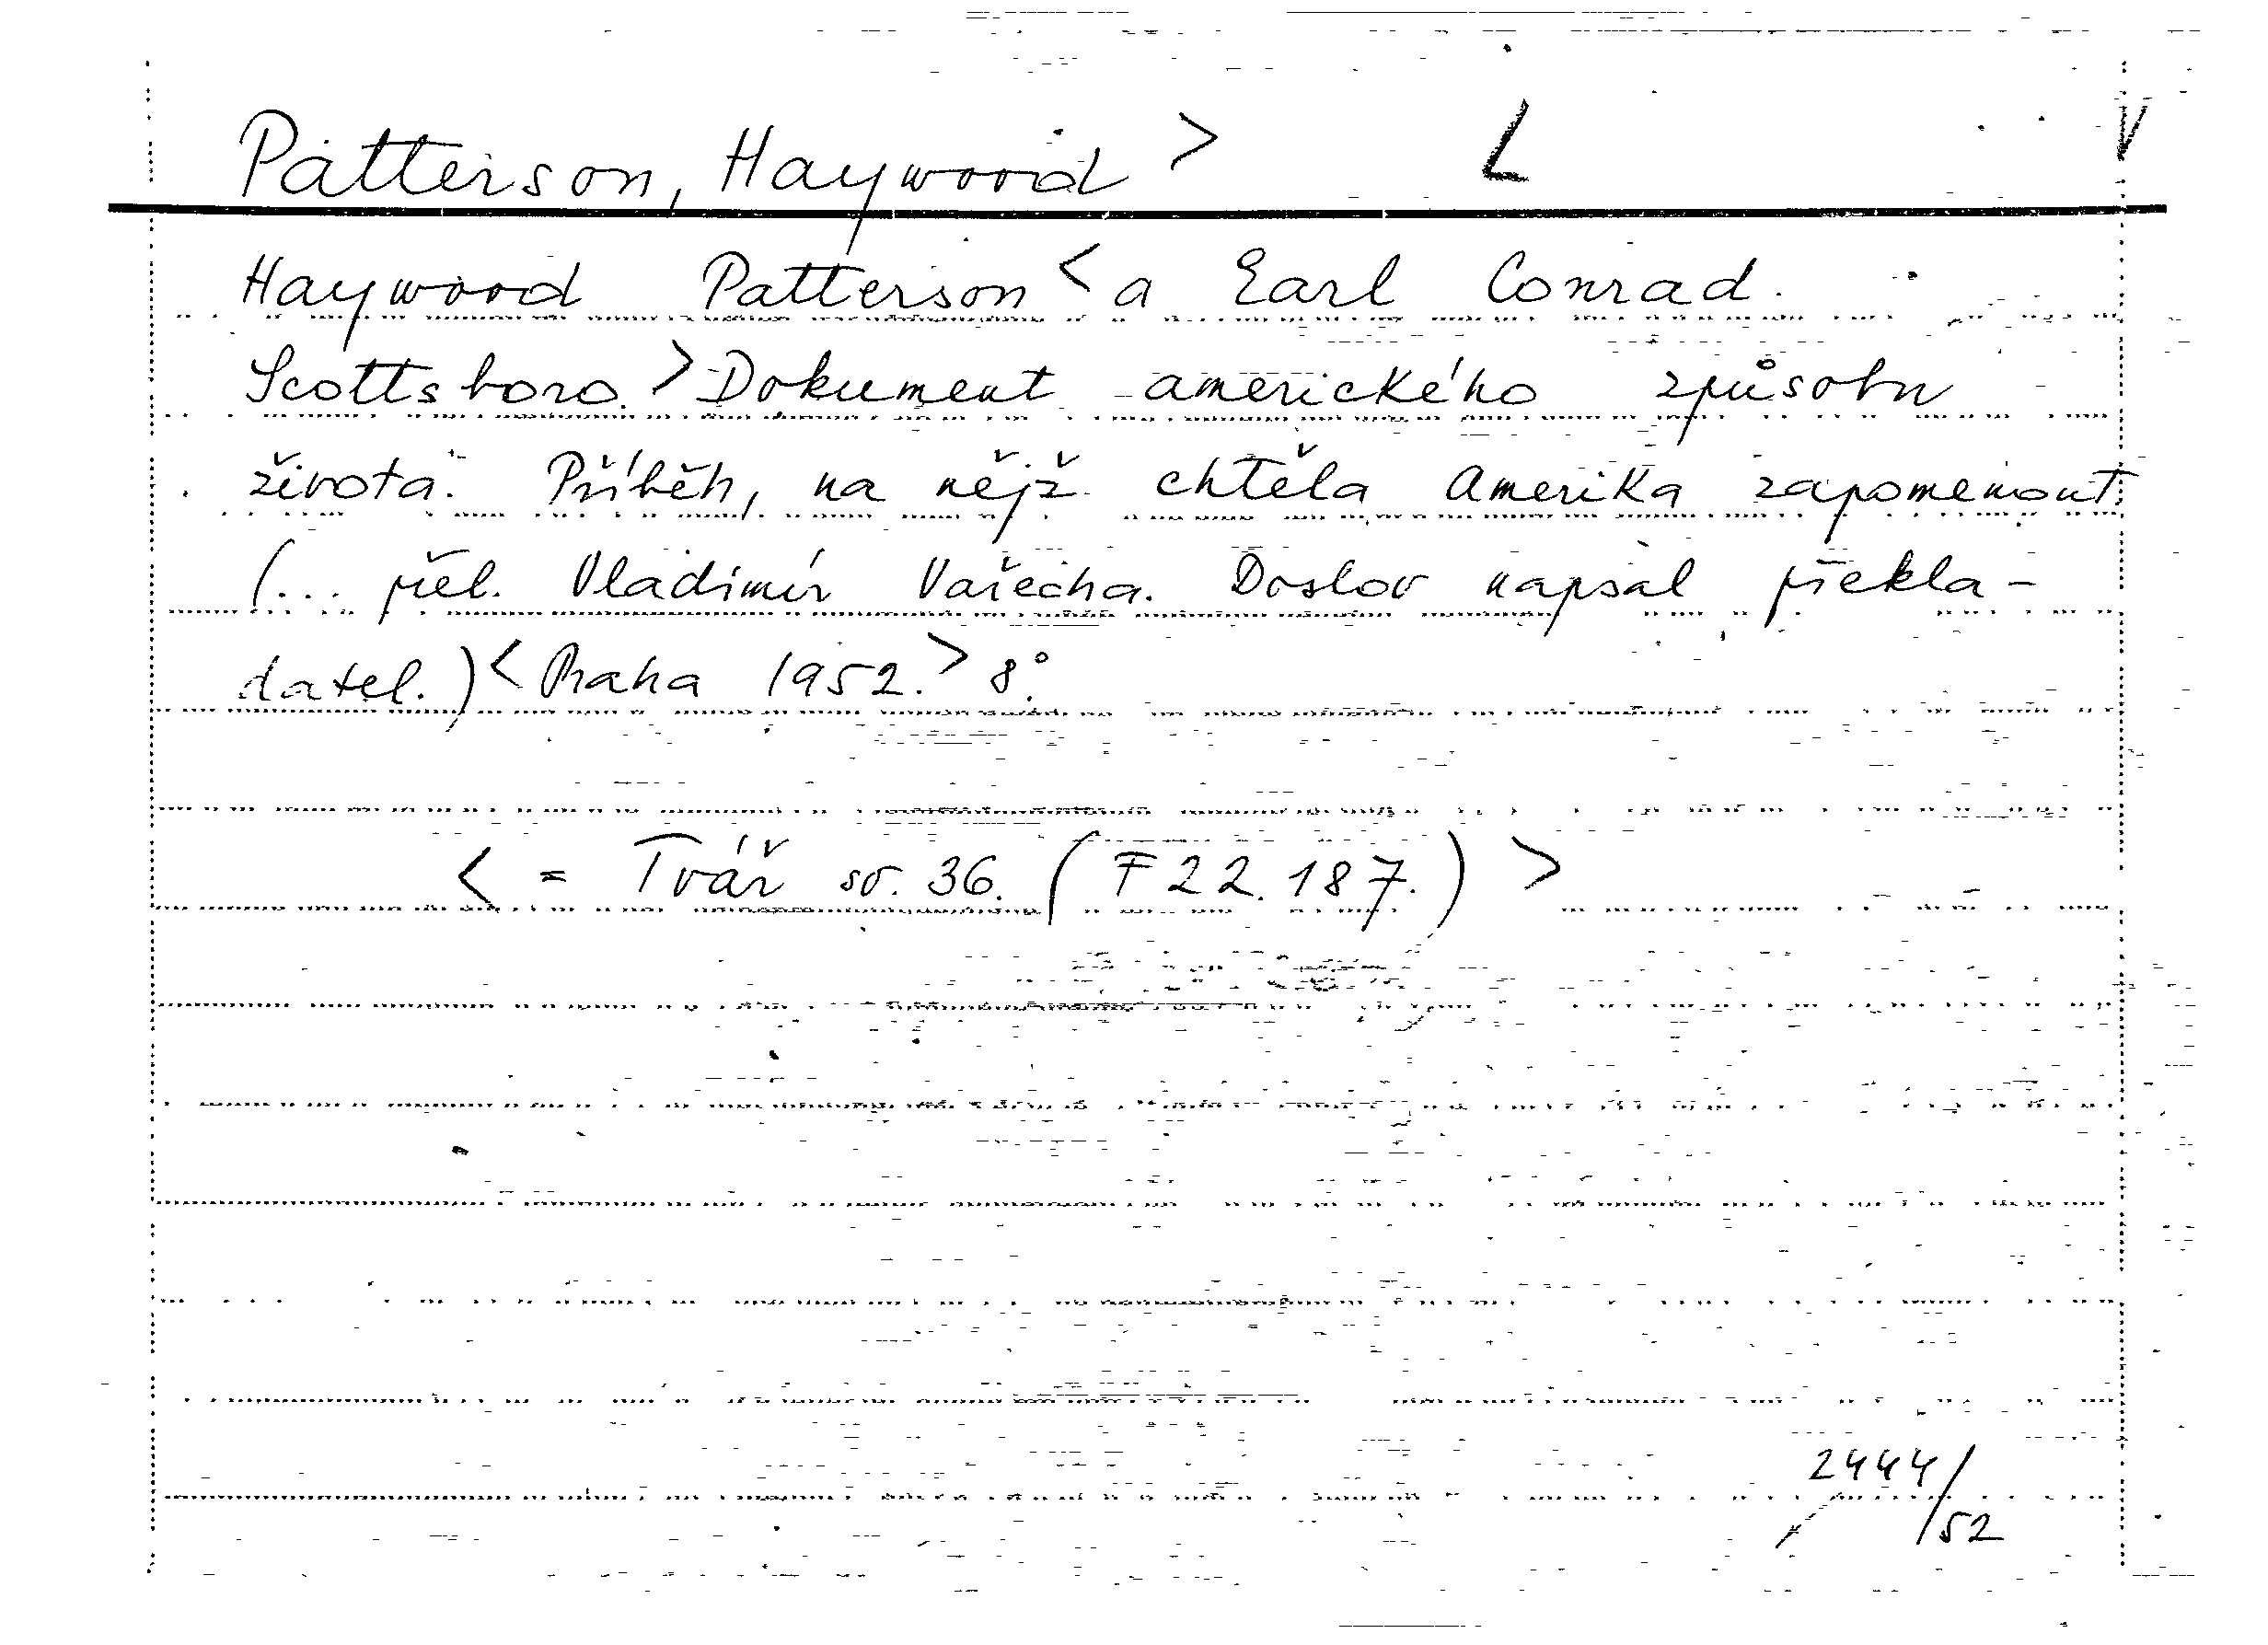 Patterson, Haywood > L V
Haywood Patterson < a Earl Conrad.
Scottsboro. > Dokument amerického způsobu
života. Příběh, na nějž chtěla Amerika zapomenout.
(... přel. Vladimír Vařecha. Doslov napsal překla-
datel.) < Praha 1952. > 8°.
< = Tvář sv. 36. (F 22.187.) >
2444/
52